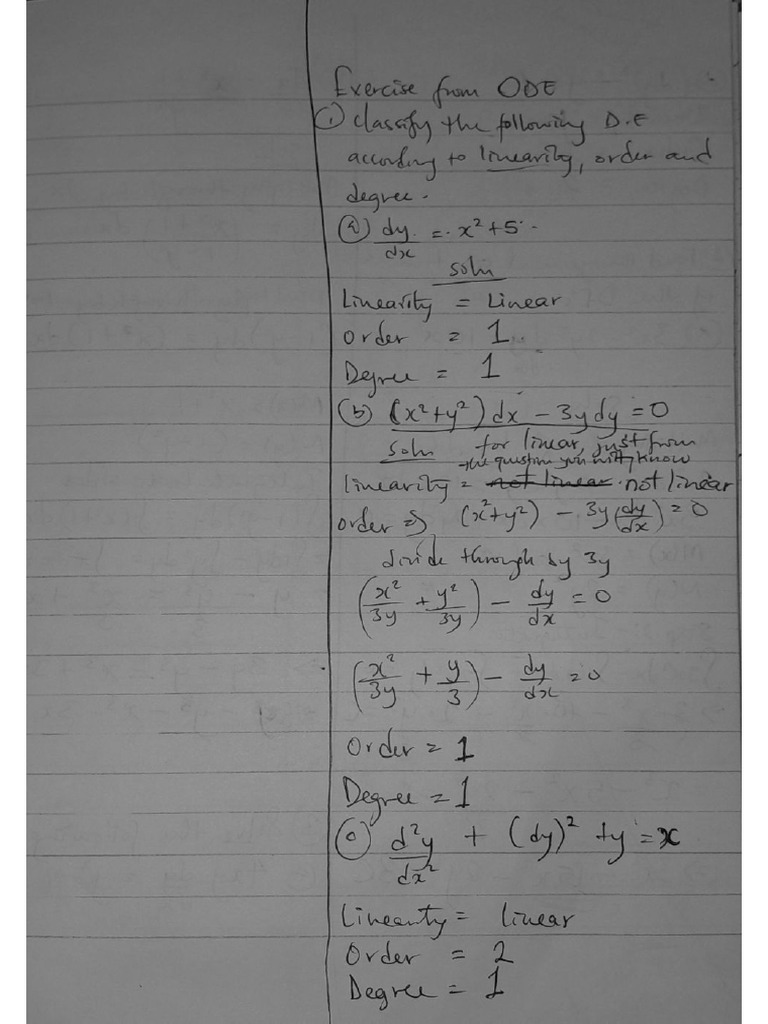 Exercise from ODE
① classify the following D.E
according to linearity, order and
degree.
(a) dy/dx = x² + 5
soln
Linearity = Linear
order = 1
Degree = 1
(b) (x² + y²) dx − 3y dy = 0
soln for linear, just from
the question you will know
linearity = not linear. not linear
order ⇒ (x² + y²) − 3y (dy/dx) = 0
divide through by 3y
(x²/3y + y²/3y) − dy/dx = 0
(x²/3y + y/3) − dy/dx = 0
Order = 1
Degree = 1
(c) d²y/dx² + (dy)² + y = x
Linearity = linear
Order = 2
Degree = 1